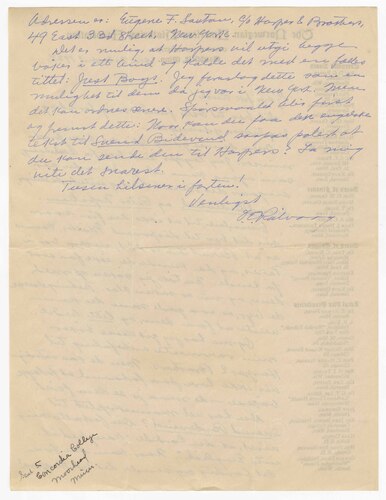 Adressen er: Eugene F. Saxton, c/o Harper & Brothers,
49 East 33d Street, New York.
Det er mulig, at Harpers vil utgi begge
bøker i ett bind og kalde det med en felles
tittel: Jest Boys. Jeg foreslog dette som en
mulighet til dem da jeg var i New York. Men
det kan ordnes senere. Spørsmaalet blir først
og fremst dette: Hvor kan du faa den engelske
tekst til Svend Bidevind saapas palert at
du kan sende den til Harpers? La mig
vite det snarest.
Tusen hilsener i farten!
Venligst
O. E. Rølvaag
Concordia College
Moorhead
Minn.